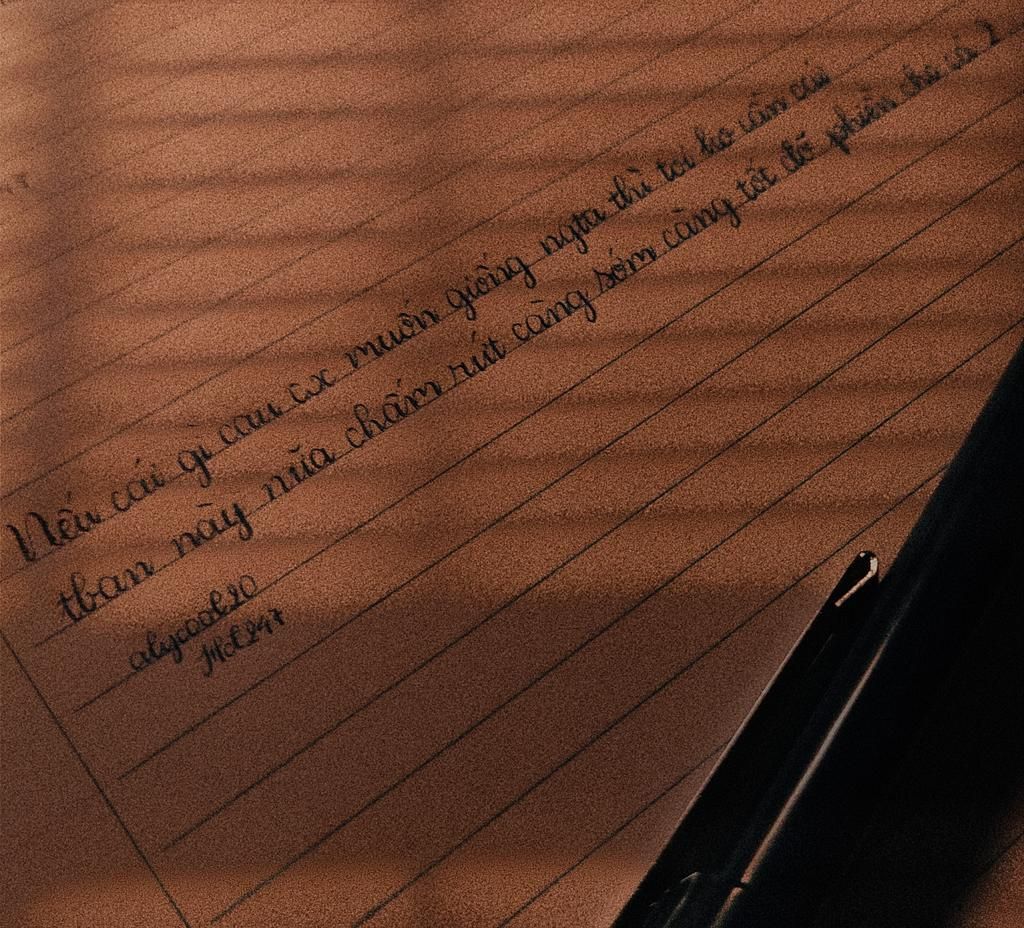 Nếu cái gì cau cx muốn giống ngta thì toi ko cần cái
tban này nữa chấm rứt càng sớm càng tốt đỡ phiền cho cả 2
alycool20
Mcl247